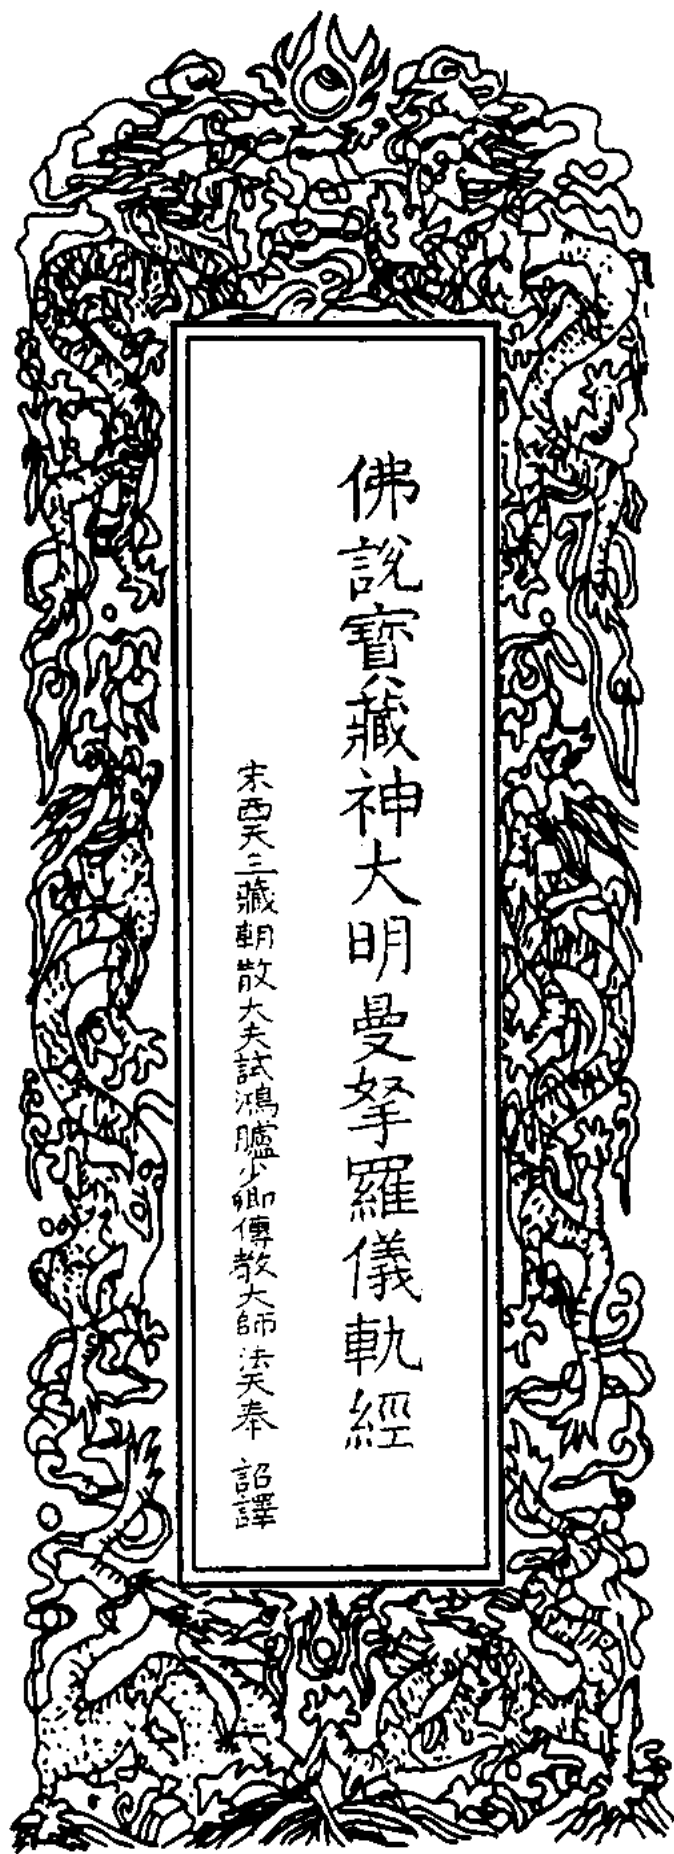 佛說寶藏神大明曼拏羅儀軌經
宋西天三藏朝散大夫試鴻臚少卿傳教大師法天奉 詔譯